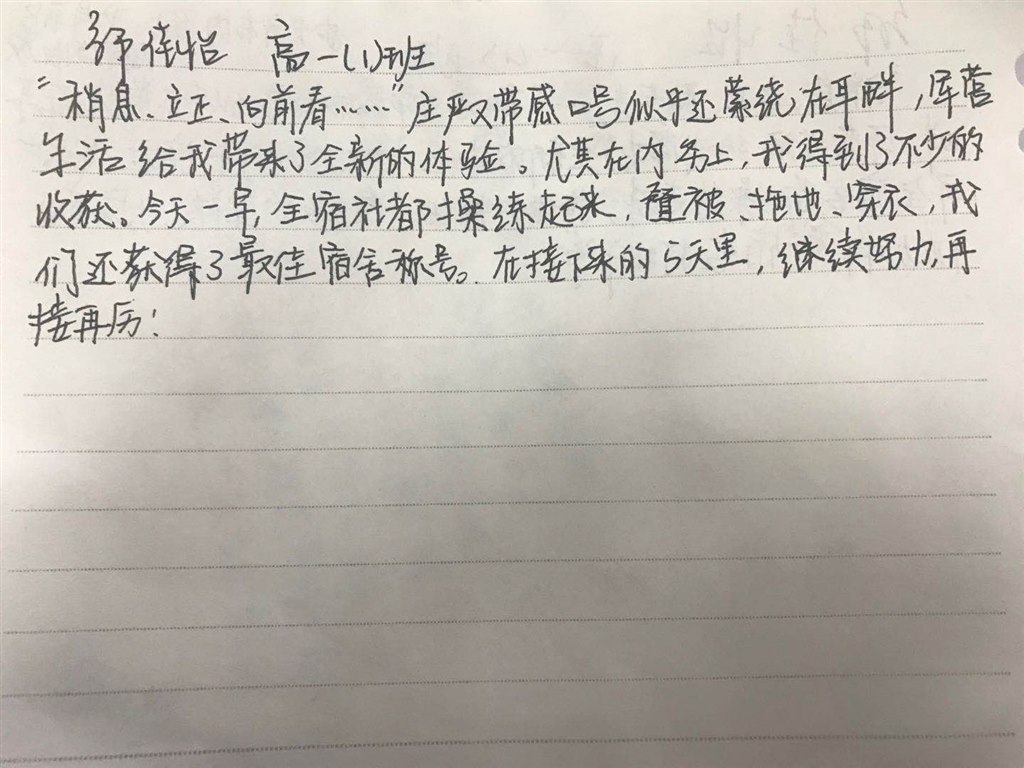 舒佳怡 高一(1)班
“稍息、立正、向前看……”庄严又带感口号似乎还萦绕在耳畔,军营
生活给我带来了全新的体验。尤其在内务上,我得到了不少的
收获。今天一早,全宿社都操练起来,叠被、拖地、穿衣,我
们还获得了最佳宿舍称号。在接下来的5天里,继续努力,再
接再厉!